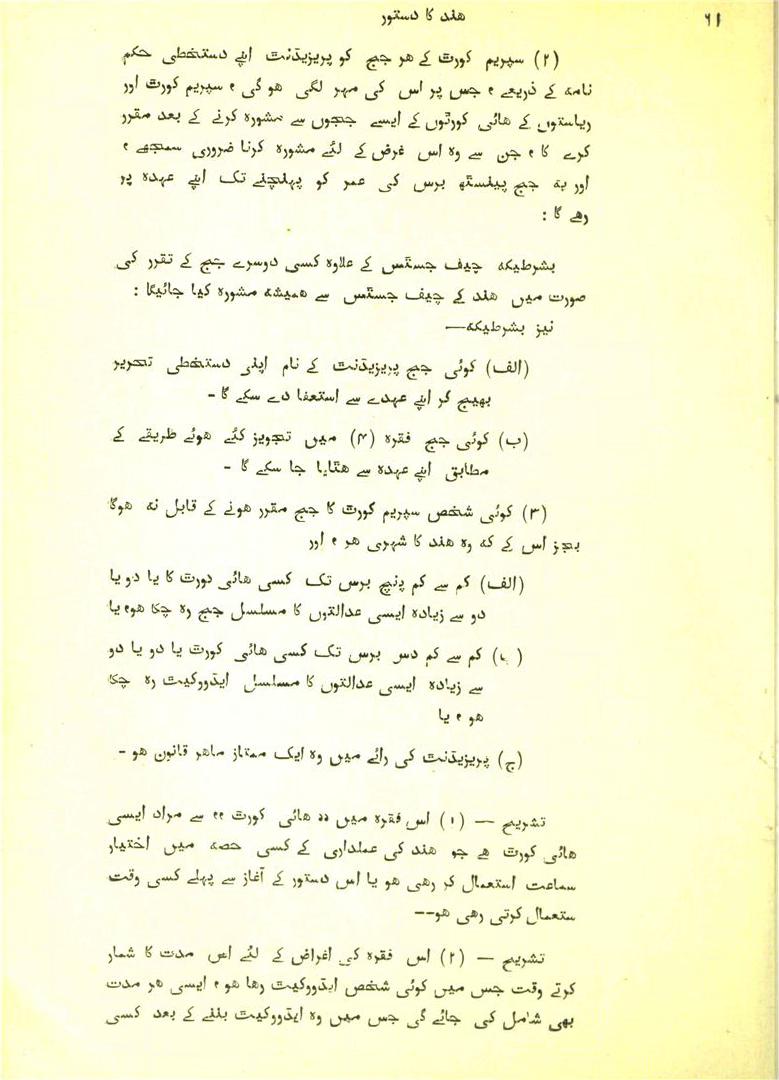 هند کا دستور
۶۱
(۲) سپریم کورٹ کے هر جج کو پریزیڈنٹ اپنے دستخطی حکم
نامہ کے ذریعے ، جس پر اس کی مہر لگی هو گی ، سپریم کورٹ اور
ریاستوں کے هائی کورٹوں کے ایسے ججوں سے مشورہ کرنے کے بعد مقرر
کرے گا ، جن سے وہ اس غرض کے لئے مشورہ کرنا ضروری سمجھے ،
اور یہ جج پینسٹھ برس کی عمر کو پہنچنے تک اپنے عہدہ پر
رهے گا :
بشرطیکہ چیف جسٹس کے علاوہ کسی دوسرے جج کے تقرر کی
صورت میں هند کے چیف جسٹس سے همیشہ مشورہ کیا جائیگا :
نیز بشرطیکہ—
(الف) کوئی جج پریزیڈنٹ کے نام اپنی دستخطی تحریر
بھیج کر اپنے عہدے سے استعفا دے سکے گا -
(ب) کوئی جج فقرہ (۴) میں تجویز کئے هوئے طریقے کے
مطابق اپنے عہدہ سے هٹایا جا سکے گا -
(۳) کوئی شخص سپریم کورٹ کا جج مقرر هونے کے قابل نہ هوگا
بجز اس کے کہ وہ هند کا شہری هر ، اور
(الف) کم سے کم پنچ برس تک کسی هائی دورٹ کا یا دو یا
دو سے زیادہ ایسی عدالتوں کا مسلسل جج رہ چکا هو، یا
(ب) کم سے کم دس برس تک کسی هائی کورٹ یا دو یا دو
سے زیادہ ایسی عدالتوں کا مسلسل ایڈووکیٹ رہ چکا
هو ، یا
(ج) پریزیڈنٹ کی رائے میں وہ ایک ممتاز ماهر قانون هو -
تشریح — (۱) اس فقرہ میں ،، هائی کورٹ ،، سے مراد ایسی
هائی کورٹ هے جو هند کی عملداری کے کسی حصہ میں اختیار
سماعت استعمال کر رهی هو یا اس دستور کے آغاز سے پہلے کسی وقت
ستعمال کرتی رهی هو--
تشریح — (۲) اس فقرہ کی اغراض کے لئے اس مدت کا شمار
کرتے وقت جس میں کوئی شخص ایڈووکیٹ رها هو ، ایسی هر مدت
بھی شامل کی جائے گی جس میں وہ ایڈووکیٹ بننے کے بعد کسی